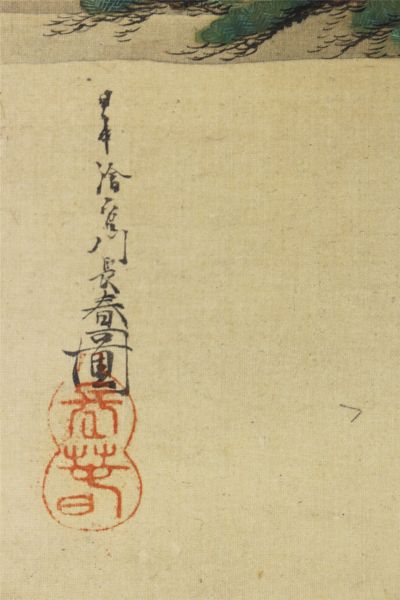 日本繪宮川長春圖
長春